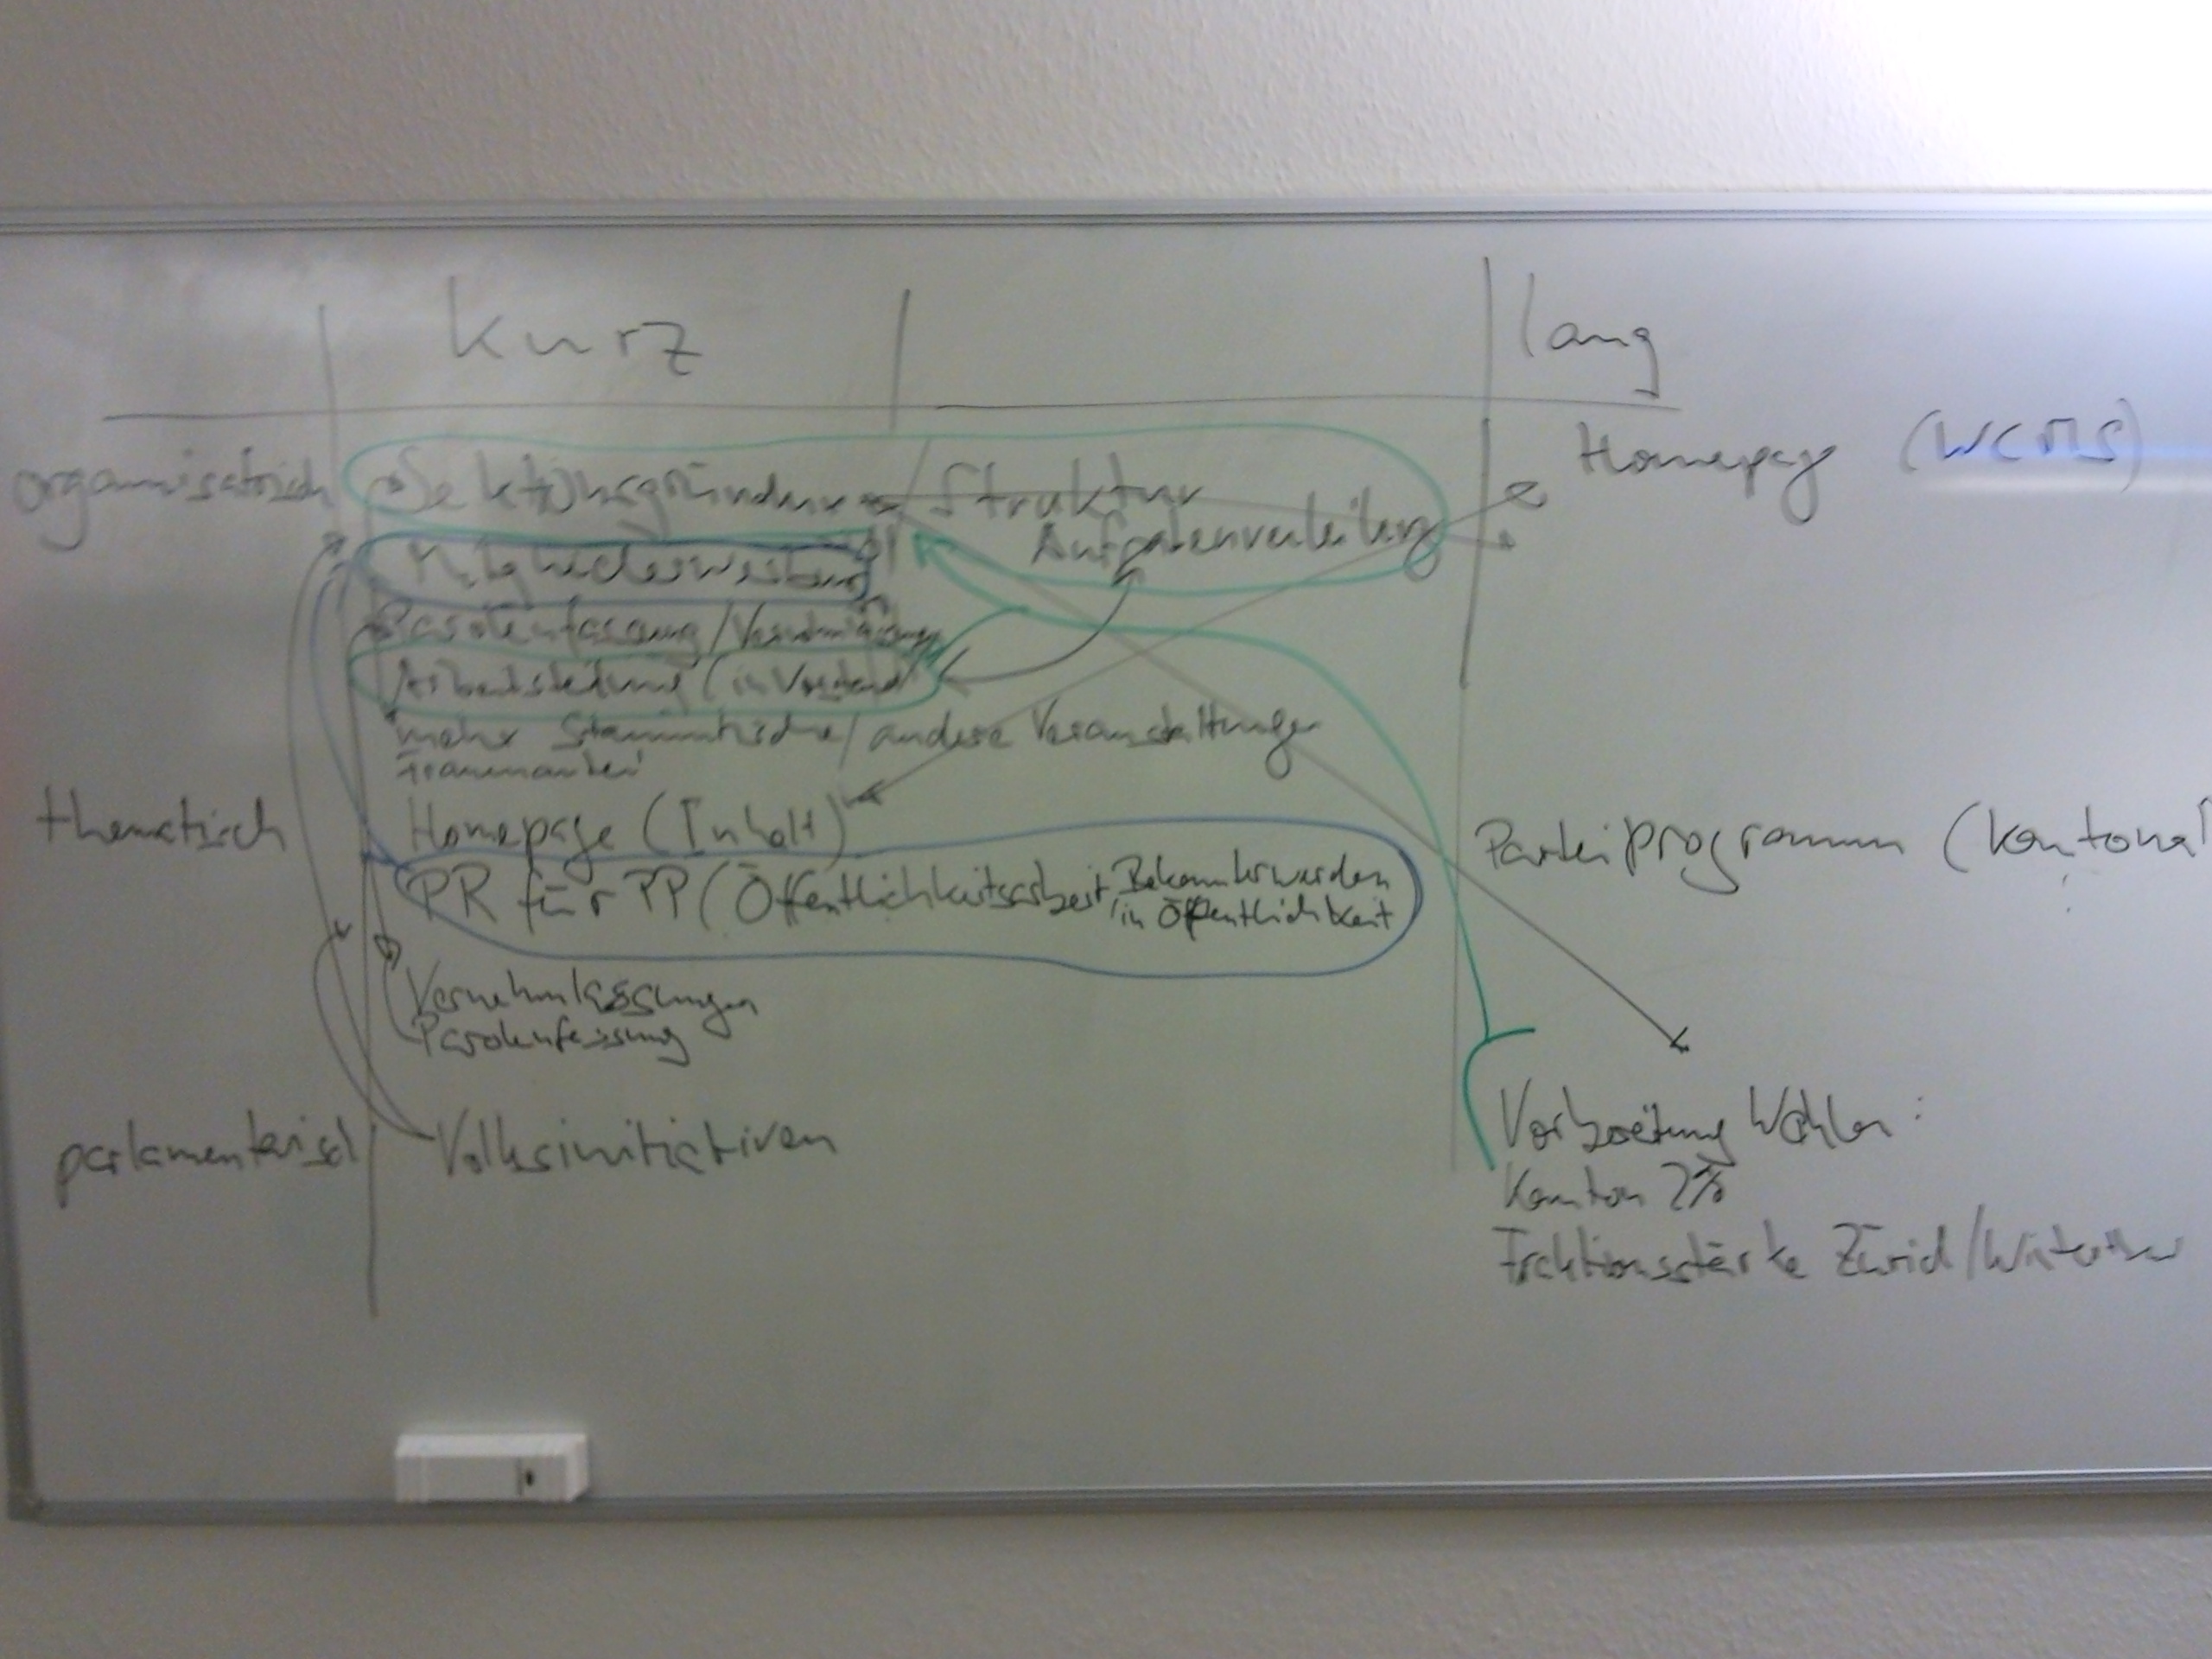 kurz
lang
organisatorisch
Sektionsgründung
Struktur
Aufgabenverteilung
Homepage (WCMS)
Mitgliederwerbung
Parolenfassung / Vernehmlassung
Arbeitsteilung (im Vorstand)
mehr Stammtische / andere Veranstaltungen
thematisch
Homepage (Inhalt)
Parteiprogramm (kantonal
PR für PP (Öffentlichkeitsarbeit, Bekannterwerden
in Öffentlichkeit
Vernehmlassungen
Parolenfassung
parlamentarisch
Volksinitiativen
Vorbereitung Wahlen:
Kanton 2%
Fraktionsstärke Zürich/Winterthur